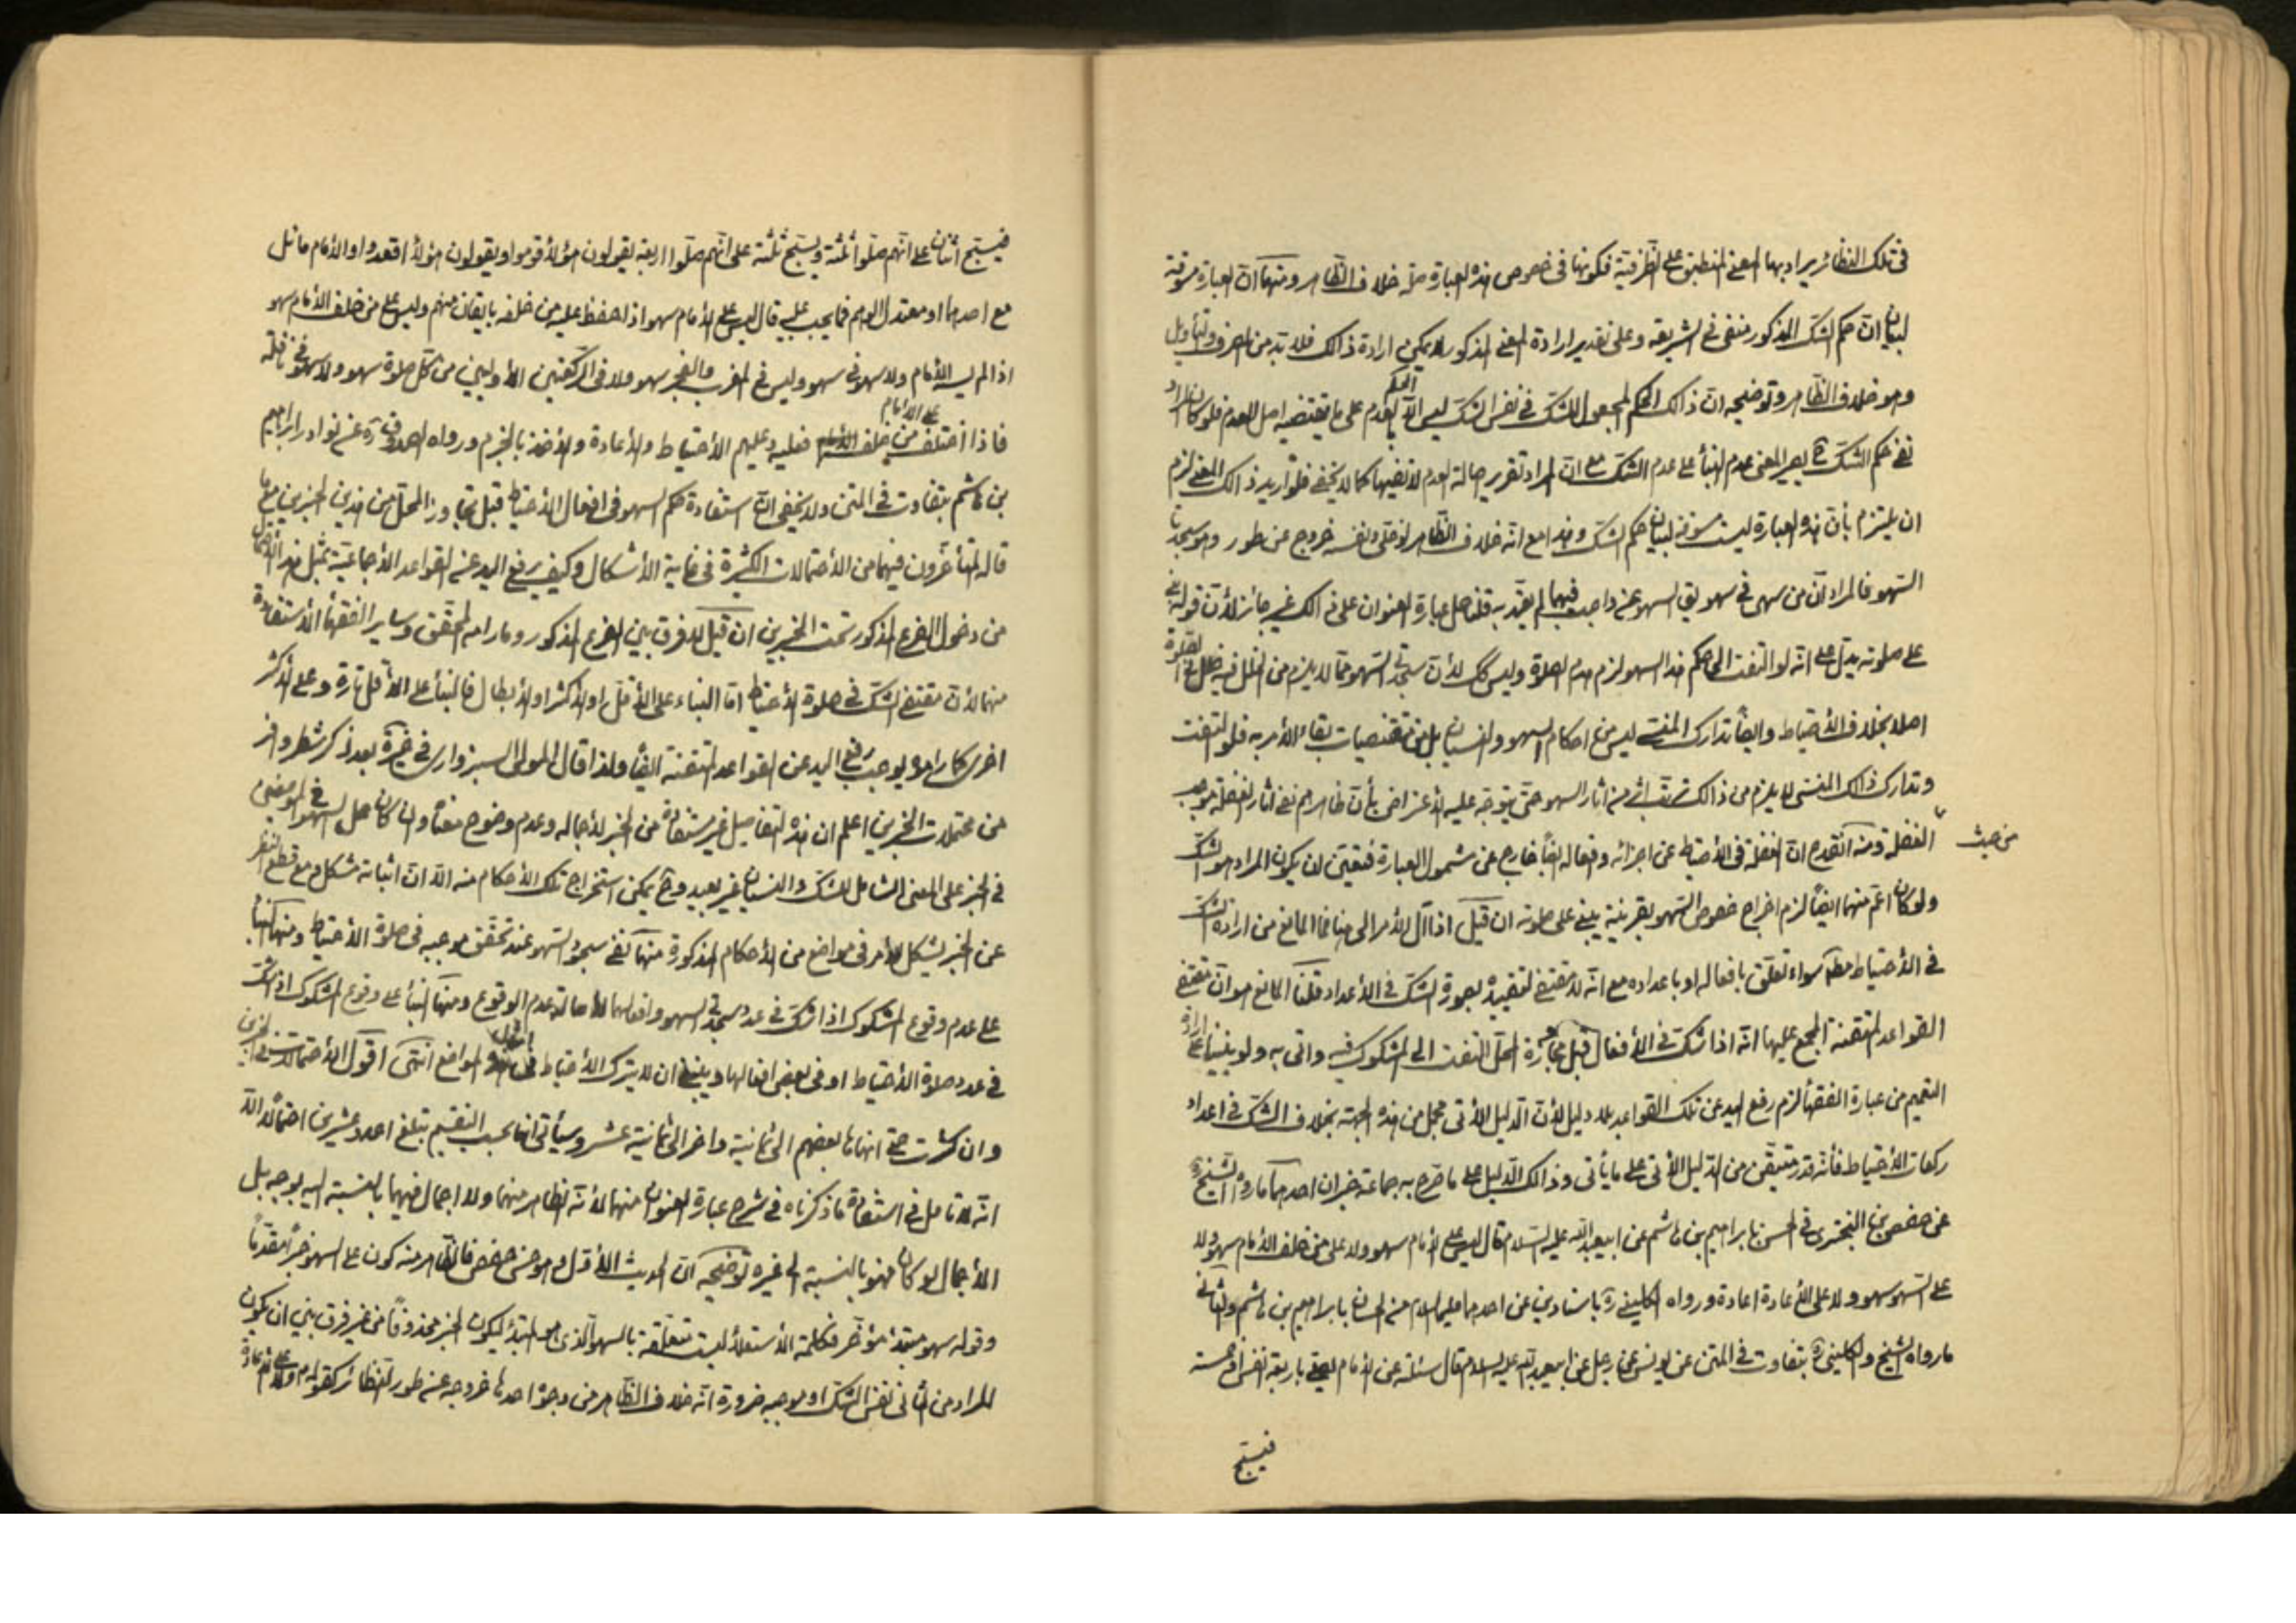 في تلك النظائر يراد بها المعنى المنطبق على الظرفية فكونها في خصوص هذه العبارة صلة خلاف الظاهر ومنها ان العبارة مسوقة
لبيان ان حكم الشك المذكور منفى في الشريعة وعلى تقدير ارادة المعنى المذكور لا يمكن ارادة ذالك فلا بد من الصرف والتأويل
وهو خلاف الظاهر وتوضيحه ان ذالك الحكم المجعول للشك في نفس الشك ليس الا الحكم بالعدم على ما يقتضيه اصل العدم فلو كان المراد
نفى حكم الشك ح يصير المعنى عدم البناء على عدم الشك مع ان المراد تقرير اصالة العدم لا نفيها كما لا يخفى فلو اريد ذالك المعنى لزم
ان يلتزم بأن هذه العبارة ليست مسوقة لبيان حكم الشك وهذا مع انه خلاف الظاهر في نفسه خروج عن طور
السهو فالمراد ان من سهى في سهو بقى السهو عن واجب فيهما لم يعتد به قلنا حمل عبارة العنوان على ذالك غير جائز لأن قوله بنى
على صلوته يدل على انه لو التفت الى حكم هذا السهو لزم هدم الصلوة وليس كك لأن سجدتى السهو مما لا يلزم من الخلل فيه خلل في الصلوة
اصلا بخلاف الأحتياط وايضاً تدارك المنسى ليس من احكام السهو والنسيان بل من مقتضيات بقاء الأمر به فلو التفت
وتدارك ذالك المنسى لا يلزم من ذالك ترتب اثر من اثار السهو حتى يتوجه عليه الأعتراض بأن ظاهرهم نفى اثار الغفلة
من حيث
الغفلة ومنه انقدح ان الغفلة في الأحتياط عن اجزائه وافعاله ايضاً خارج عن شمول العبارة فتعين ان يكون المراد هو الشك
ولو كان اعم منهما ايضاً لزم اخراج خصوص السهو بقرينة يبنى على صلوته ان قيل اذا آل الأمر الى هنا فما المانع من ارادة الشك
في الأحتياط مطلقا سواء تعلق بافعاله او باعداده مع انه لا مقتضى لتقييده بصورة الشك في الأعداد قلنا المانع هو ان مقتضى
القواعد المتقنة المجمع عليها انه اذا شك في الأفعال قبل تجاوز المحل التفت الى المشكوك فيه واتى به ولو بنينا على ارادة
التعميم من عبارة الفقهاء لزم رفع اليد عن تلك القواعد بلا دليل لأن الدليل الأتى مجمل من هذه الجهة بخلاف الشك في اعداد
ركعات الأحتياط فأنه قدر متيقن من الدليل الأتى على ما يأتى وذالك الدليل على ما صرح به جماعة خبران احدهما ما رواه الشيخ
عن حفص بن البخترى في الحسن بابراهيم بن هاشم عن ابيعبد الله عليه السلام قال ليس على الأمام سهو ولا على من خلف الأمام سهو ولا
على السهو سهو ولا على الأعادة اعادة ورواه الكلينى ره باسنادين عن احدهما عليهما السلام من الحسان بابراهيم بن هاشم والثانى
ما رواه الشيخ والكلينى ره بتفاوت في المتن عن يونس عن رجل عن ابيعبد الله عليه السلام قال سئلته عن الأمام يصلى باربعة انفس او خمسة
فيسبح
فيسبح اثنان على انهم صلوا ثلثة ويسبح ثلثة على انهم صلوا اربعة يقولون هؤلاء قوموا ويقولون هؤلاء اقعدوا والأمام مائل
مع احدهما او معتدل الوهم فما يجب عليه قال ليس على الأمام سهو اذا حفظ عليه من خلفه بايقان منهم وليس على من خلف الأمام سهو
اذا لم يسه الأمام ولا سهو في سهو وليس في المغرب والفجر سهو ولا في الركعتين الأوليين من كل صلوة سهو ولا سهو في نافلة
فاذا اختلف على الأمام من خلفه فعليه وعليهم الأحتياط والأعادة والأخذ بالجزم ورواه الصدوق ره عن نوادر ابراهيم
بن هاشم بتفاوت في المتن ولا يخفى ان استفادة حكم السهو في افعال الأحتياط قبل تجاوز المحل من هذين الخبرين مع ما
قاله المتأخرون فيهما من الأحتمالات الكثيرة في غاية الأشكال وكيف يرفع اليد عن القواعد الأجماعية بمثل هذا الأجمال
من دخول الفرع المذكور تحت الخبرين ان قيل لا فرق بين الفرع المذكور وما رامه المحقق وساير الفقهاء الأستفادة
منهما لأن مقتضى الشك في صلوة الأحتياط اما البناء على الأقل او الأكثر او الأبطال فالبناء على الأقل تارة وعلى الأكثر
اخرى كما راموه يوجب رفع اليد عن القواعد المتقنة ايضاً ولذا قال المولى السبزوارى في ذخيرة بعد ذكر شطر وافر
من محتملات الخبرين اعلم ان هذه التفاصيل غير مستفادة من الخبر لأجماله وعدم وضوح معناه وان كان حمل السهو في الموضعين
في الخبر على المعنى الشامل للشك والنسيان غير بعيد وح يمكن استخراج تلك الأحكام منه الا ان اثباته مشكل ومع قطع النظر
عن الخبر يشكل الأمر في مواضع من الأحكام المذكورة منها نفى سجود السهو عند تحقق موجبه في صلوة الأحتياط ومنها البناء
على عدم وقوع المشكوك اذا شك في عدد سجدتى السهو وافعالهما لأصالة عدم الوقوع ومنها البناء على وقوع المشكوك اذا شك
في عدد صلوة الأحتياط او في بعض افعالها وينبغى ان لا يترك الأحتياط في المواضع انتهى اقول الأحتمالات في الخبرين
وان كثرت حتى انهاها بعضهم الى ثمانية واخر الى ثمانية عشر وسيأتى انها بحسب التقسيم تبلغ اعدد عشرين احتمالاً الا
انه لا تأمل في استفادة ما ذكرناه في شرح عبارة العنوان منهما لأنه الظاهر منهما ولا اجمال فيهما بالنسبة اليه بوجه بل
الأجمال لو كان فهو بالنسبة الى غيره توضيحه ان الحديث الأول هو حسن حفص فالظاهر منه كون على السهو خبراً مقدماً
وقوله سهو مبتدأ مؤخر فكلمة الأستعلاء ليست متعلقة بالسهو الذى هو المبتدأ ليكون الخبر محذوفاً من غير فرق بين ان يكون
المراد من الثانى نفس الشك او موجبه ضرورة انه خلاف الظاهر من وجوه احدها خروجه عن طور النظائر كقوله ولا على الأعادة